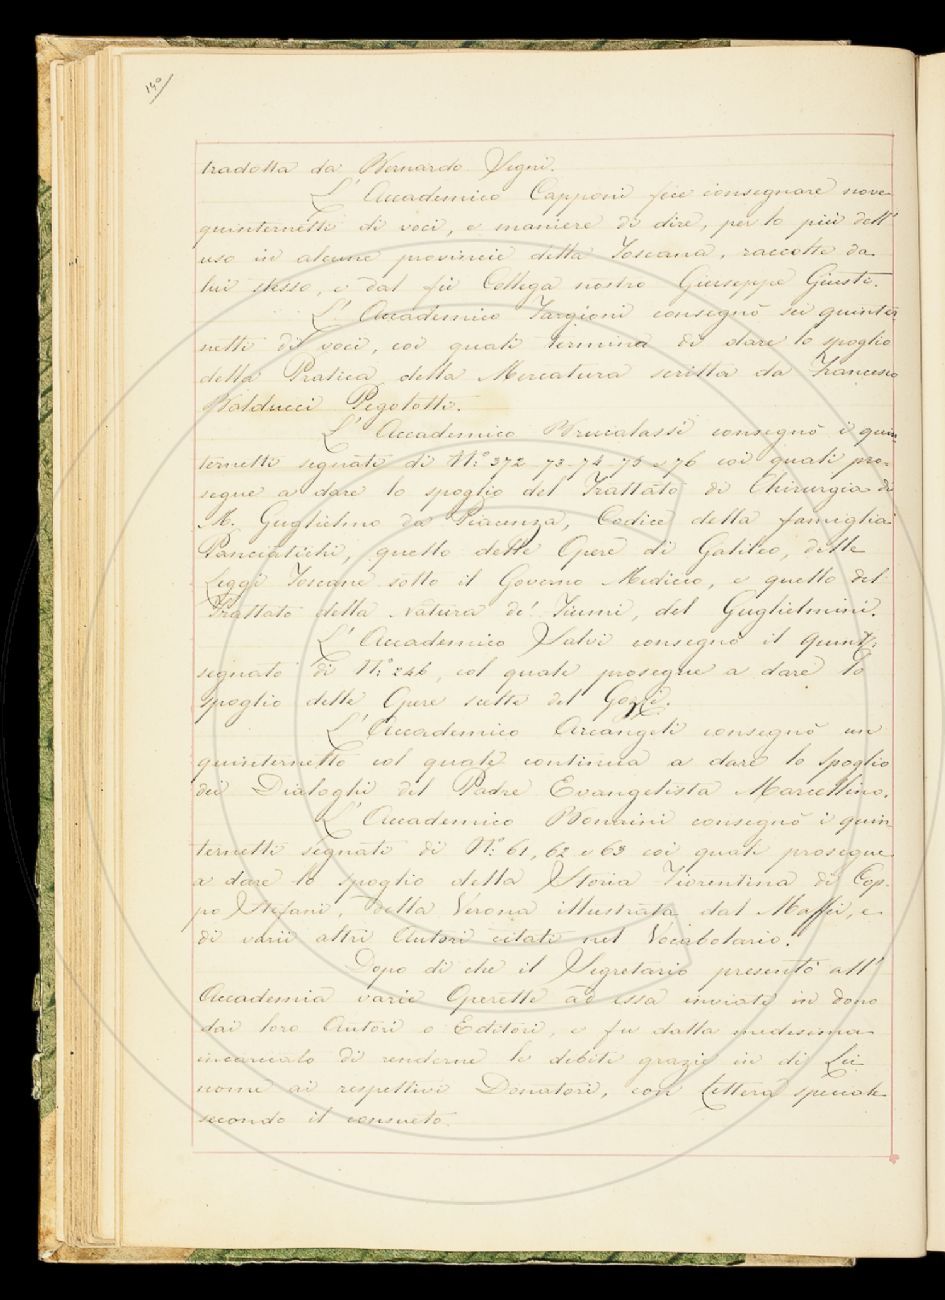 140
tradotta da Bernardo Segni.
L'Accademico Capponi fece consegnare nove
quinternetti di voci, e maniere di dire, per lo più dell'
uso in alcune provincie della Toscana, raccolte da
lui stesso, e dal fù Collega nostro Giuseppe Giusti.
L'Accademico Targioni consegnò sei quinter
netti di voci, coi quali termina di dare lo spoglio
della Pratica della Mercatura scritta da Francesco
Balducci Pegolotti.
L'Accademico Brucalassi consegnò i quin
ternetti segnati di N.º 372-73-74-75 e 76 coi quali pro-
segue a dare lo spoglio del Trattato di Chirurgia di
M. Guglielmo da Piacenza, Codice della famiglia
Panciatichi, quello delle Opere di Galileo, delle
Leggi Toscane sotto il Governo Mediceo, e quello del
Trattato della natura de' Fiumi, del Guglielmini.
L'Accademico Salvi consegnò il quint:
segnato di N.º 246, col quale prosegue a dare lo
spoglio delle Opere scelte del Gozzi.
L'Accademico Arcangeli consegnò un
quinternetto col quale continua a dare lo spoglio
dei Dialoghi del Padre Evangelista Marcellino.
L'Accademico Bonaini consegnò i quin
ternetti segnati di N.º 61, 62 e 63 coi quali prosegue
a dare lo spoglio della Storia Fiorentina di Cop-
po Stefani, della Verona illustrata dal Maffei, e
di varii altri Autori citati nel Vocabolario.
Dopo di che il Segretario presentò all'
Accademia varie Operette ad essa inviate in dono
dai loro Autori o Editori, e fu dalla medesima
incaricato di renderne le debite grazie in di Lei
nome ai respettivi Donatori, con Lettera speciale
secondo il consueto.